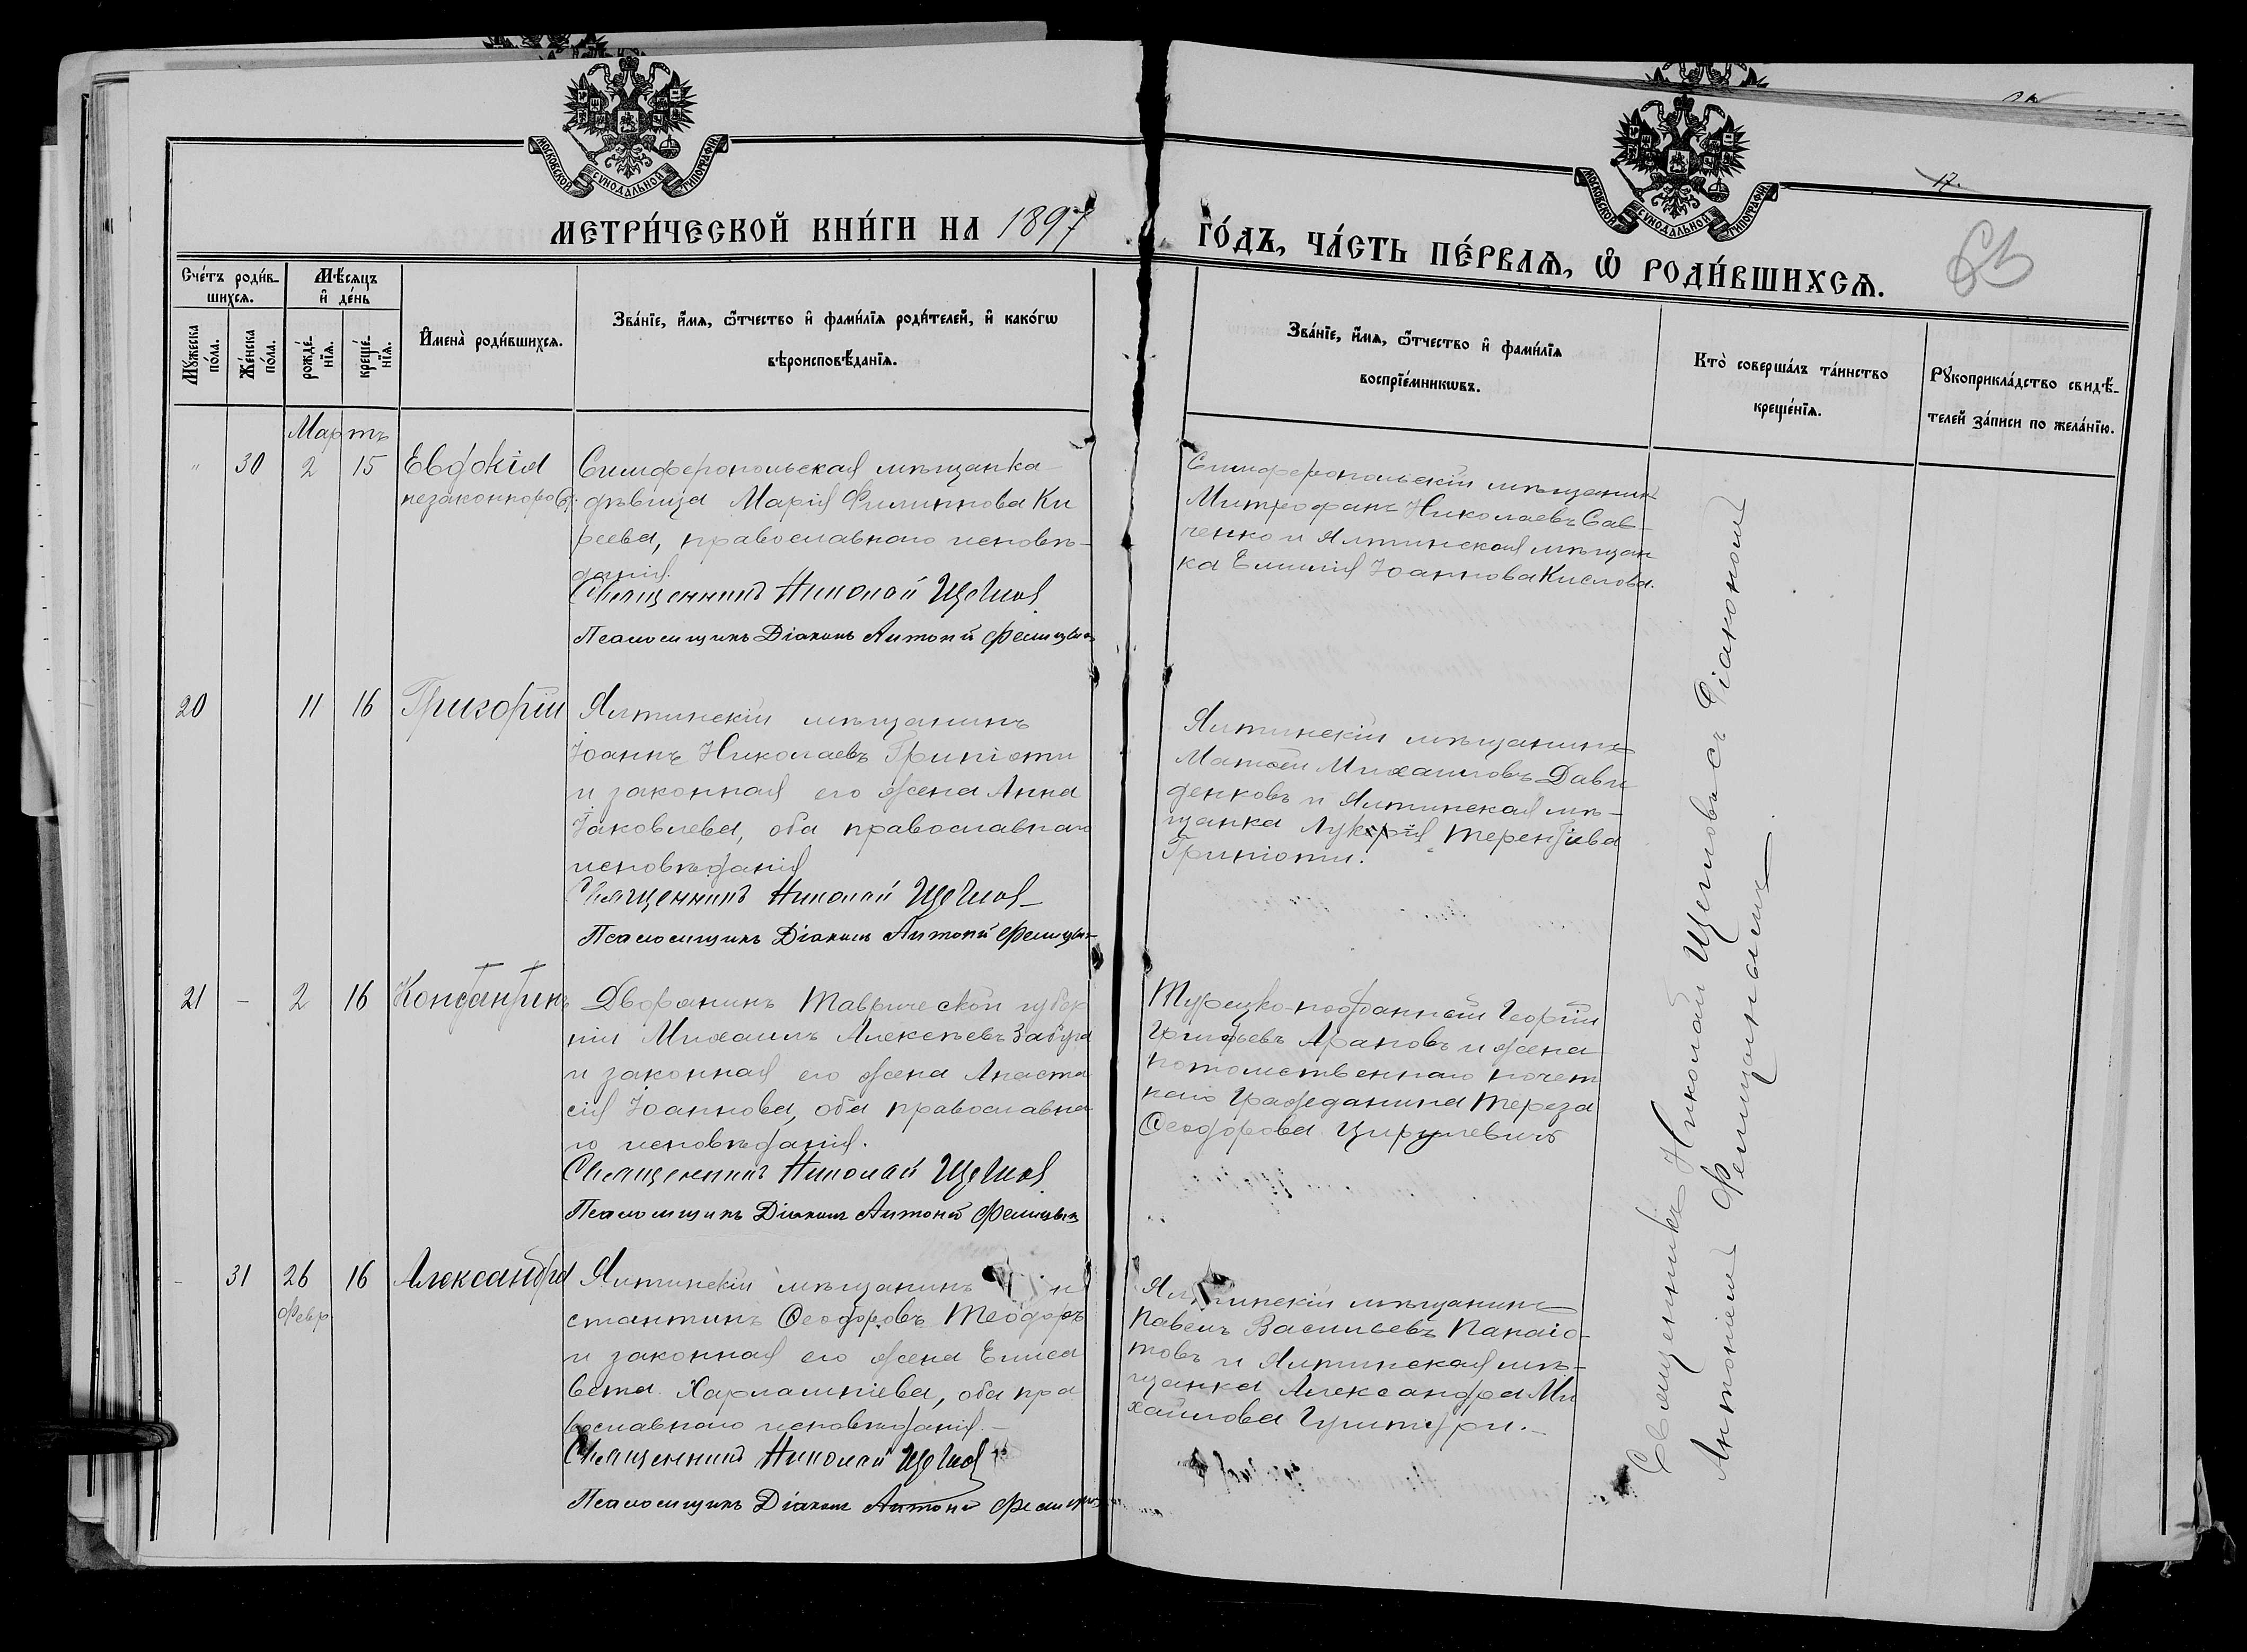 МОСКОВСКОЙ СѴНОДАЛЬНОЙ ТИПОГРАФІИ
МОСКОВСКОЙ СѴНОДАЛЬНОЙ ТИПОГРАФІИ
17.
МЕТРИ́ЧЕСКОЙ КНИ́ГИ НА 1897
ГО́ДЪ, ЧА́СТЬ ПЕ́РВАѦ, Ѽ РОДИ́ВШИХСѦ.
Сче́тъ роди́в-
шихсѧ.
Мѣ́сѧцъ
и҆ де́нь
Мꙋ́жеска
по́ла.
Же́нска
по́ла.
рожде́-
нїѧ.
креще́-
нїѧ.
И҆мена̀ роди́вшихсѧ.
Зва́нїе, и҆́мѧ, ѻ҆́тчество и҆ фами́лїѧ роди́телей, и҆ како́гѡ
вѣроисповѣ́данїѧ.
Зва́нїе, и҆́мѧ, ѻ҆́тчество и҆ фами́лїѧ
воспрїе́мникѡвъ.
Кто̀ соверша́лъ та́инство
креще́нїѧ.
Рꙋкоприкла́дство свидѣ́-
телей за́писи по жела́нїю.
Мартъ
" 30 2 15 Евдокія
незаконнорожд.
Симферопольская мѣщанка
дѣвица Марія Филиппова Ки
реева, православнаго исповѣ-
данія.
Священникъ Николай Щегловъ
Псаломщикъ Діаконъ Антоній Фелицынъ
Симферопольскій мѣщанинъ
Митрофанъ Николаевъ Сав-
ченко и Ялтинская мѣщан
ка Емилія Іоаннова Кислова.
20 11 16 Григорій
Ялтинскій мѣщанинъ
Іоаннъ Николаевъ Грипіоти
и законная его жена Анна
Іаковлева, оба православнаго
исповѣданія
Священникъ Николай Щегловъ
Псаломщикъ Діаконъ Антоній Фелицынъ
Ялтинскій мѣщанинъ
Матѳей Михаиловъ Дави
денковъ и Ялтинская мѣ-
щанка Лукерія Терентіева
Грипіоти.
21 - 2 16 Константинъ
Дворянинъ Таврической губер
ніи Михаилъ Алексѣевъ Забуга
и законная его жена Анаста
сія Іоаннова, оба православна
го исповѣданія.
Священникъ Николай Щегловъ
Псаломщикъ Діаконъ Антоній Фелицынъ
Турецко-подданный Георгій
Григорьевъ Араповъ и жена
потомственнаго почет
наго Гражданина Тереза
Ѳеодорова Цирулевичъ
- 31 26 16 Александра
Февр.
Ялтинскій мѣщанинъ
стантинъ Ѳеодоровъ Теодоръ
и законная его жена Елиса
вета Харлампіева, оба пра
вославнаго исповѣданія.-
Священникъ Николай Щегловъ
Псаломщикъ Діаконъ Антоній Фелицынъ
Ялтинскій мѣщанинъ
Павелъ Васильевъ Панаіо-
товъ и Ялтинская мѣ-
щанка Александра Ми
хайлова
Священникъ Николай Щегловъ съ Діакономъ
Антоніемъ Фелицынымъ